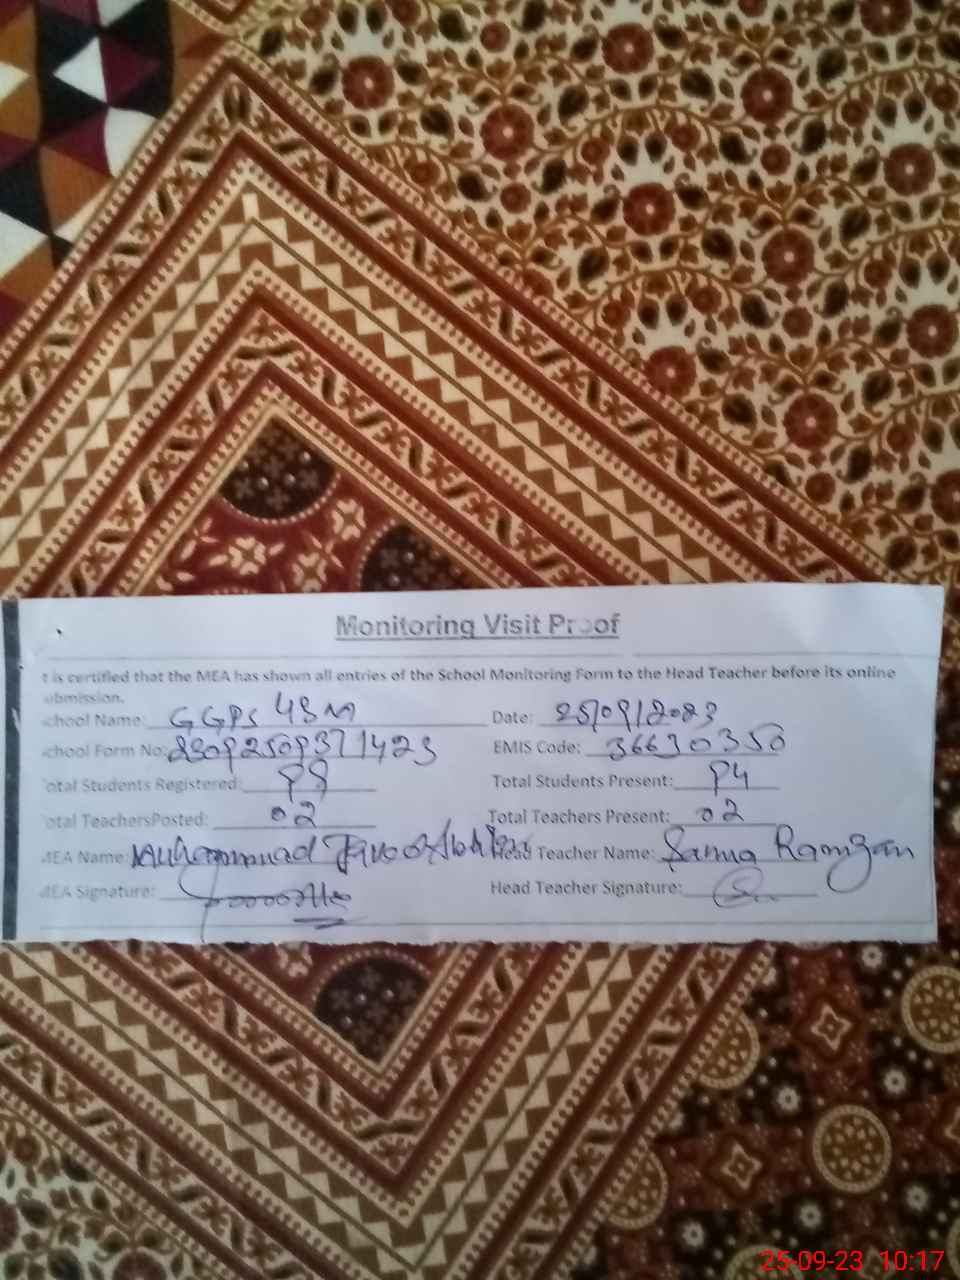 Monitoring Visit Proof
t is certified that the MEA has shown all entries of the School Monitoring Form to the Head Teacher before its online
ubmission.
chool Name: GGPS 48M Date: 25/09/2023
chool Form No: EMIS Code: 36630350
otal Students Registered: 98 Total Students Present: 94
otal TeachersPosted: 02 Total Teachers Present: 02
MEA Name: Muhammad Head Teacher Name: Ramzan
MEA Signature: Head Teacher Signature:
25-09-23 10:17